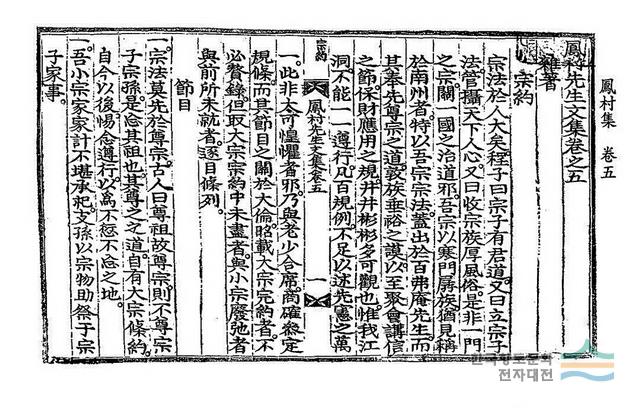 鳳村集 卷五
鳳村先生文集卷之五
雜著
宗約
宗法於人大矣程子曰宗子有君道又曰立宗子
法管攝天下人心又曰收宗族厚風俗是非一門
之宗關一國之治道邪吾宗以寒門孱族猶見稱
於南州者特以吾宗宗法蓋出於百弗庵先生而
其奉先尊宗之道敦族垂裕之謨以至聚會講信
之節保財應用之規井井彬彬多可觀也惟我江
洞不能一一遵行凡百規例不足以述先憲之萬
宗約 鳳村先生文集卷五 一
一此非大可惶懼者邪乃與老少合席商確參定
規條而其節目之關於大倫昭載大宗完約者不
必贅錄但取大宗宗約中未盡者與小宗廢弛者
與前所未就者逐目條列
節目
一宗法莫先於尊宗古人曰尊祖故尊宗則不尊宗
子宗孫是忘其祖也其尊之之道自有大宗條約
自今以後惕念遵行以爲不愆不忘之地
一吾小宗家家計不堪承祀支孫以宗物助祭于宗
子家事
한국향토문화
전자대전